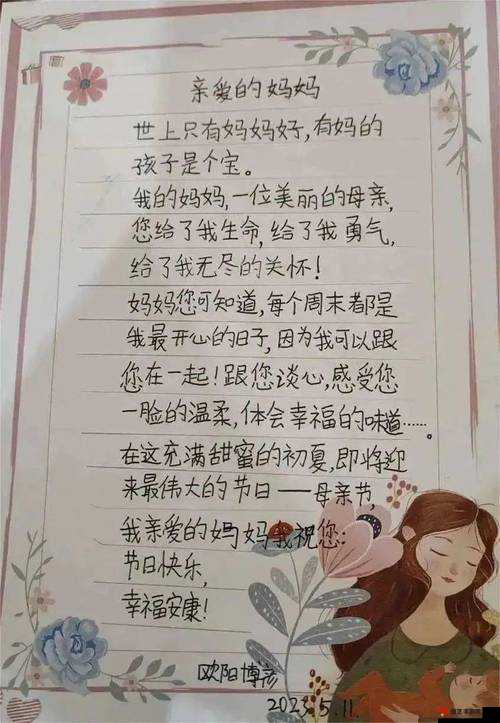 亲爱的妈妈
世上只有妈妈好,有妈的
孩子是个宝。
我的妈妈,一位美丽的母亲,
您给了我生命,给了我勇气,
给了我无尽的关怀!
妈妈您可知道,每个周末都是
我最开心的日子,因为我可以跟
您在一起!跟您谈心,感受您
一脸的温柔,体会幸福的味道……。
在这充满甜蜜的初夏,即将迎
来最伟大的节日——母亲节,
我亲爱的妈妈我祝您:
节日快乐,
幸福安康!
欧阳博彦
2023.5.11.